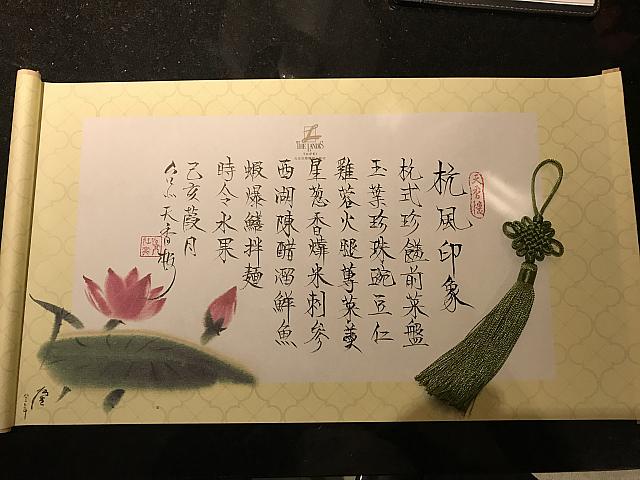 THE LANDIS
TAIPEI
天香樓
杭風印象
杭式珍饈前菜盤
玉葉珍珠豌豆仁
雞蓉火腿蓴菜羹
星蔥香㸆米刺參
西湖陳醋溜鮮魚
蝦爆鱔拌麵
時令水果
己亥葭月
天香樓